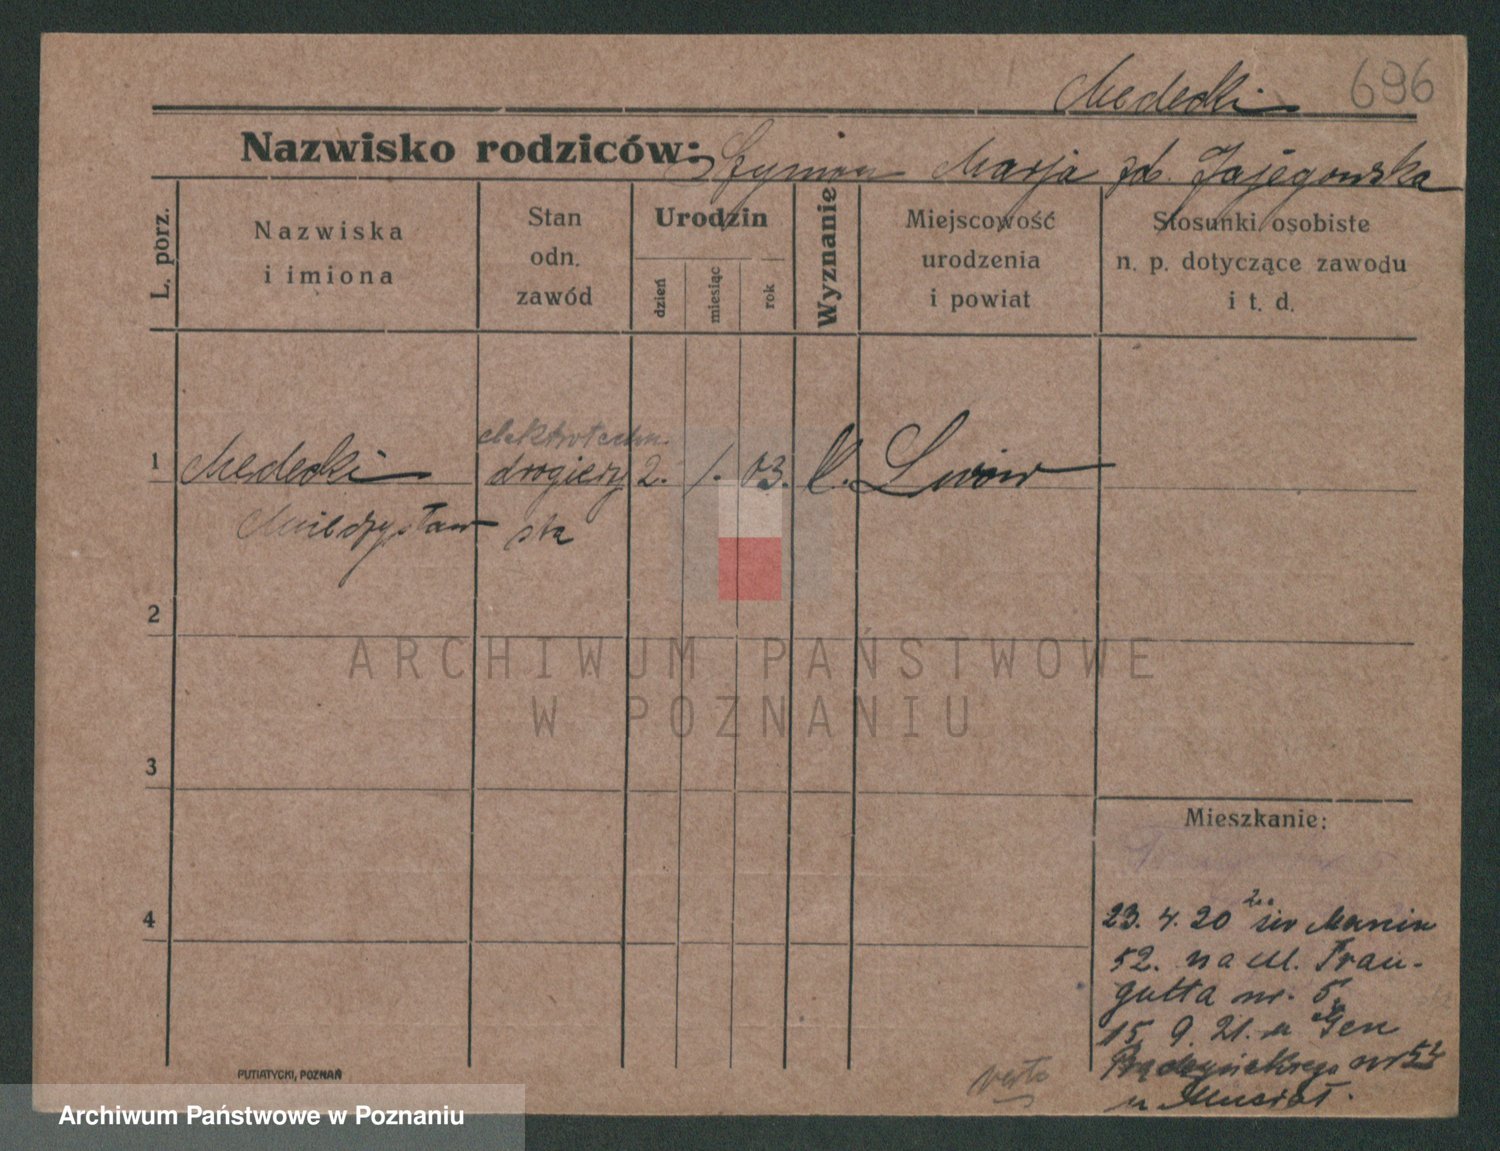 Medecki 696
Nazwisko rodziców: Szymon Marja zd. Jajegowska
L. porz.
Nazwiska
i imiona
Stan
odn.
zawód
Urodzin
dzień
miesiąc
rok
Wyznanie
Miejscowość
urodzenia
i powiat
Stosunki osobiste
n. p. dotyczące zawodu
i t. d.
elektrotechn.
1 Medecki drogiery 2. 1. 03. k. Lwów
Mieczysław sta
2
ARCHIWUM PAŃSTWOWE
W POZNANIU
3
Mieszkanie:
4
23. 4. 20 Marcin
52. na ul. Trau-
gutta nr. 5
15. 9. 21. u Gen
Prądzyńskiego nr 52
u Musiał.
verte
PUTIATYCKI, POZNAŃ
Archiwum Państwowe w Poznaniu